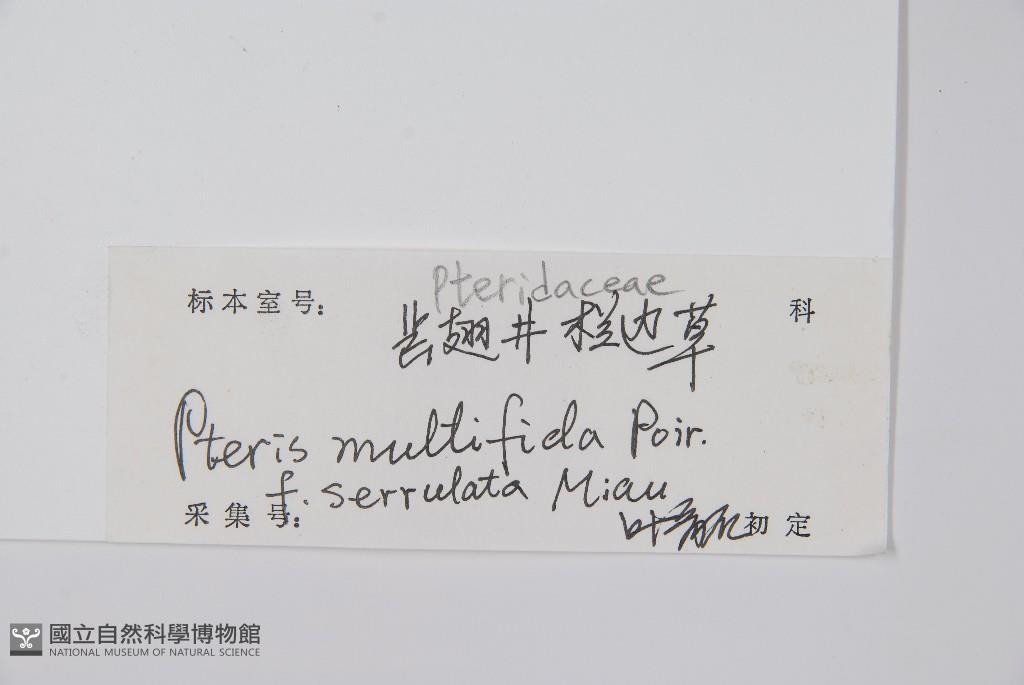 Pteridaceae
标本室号: 科
翅井栏边草
Pteris multifida Poir.
f. serrulata Miau
采集号: 初定
國立自然科學博物館
NATIONAL MUSEUM OF NATURAL SCIENCE